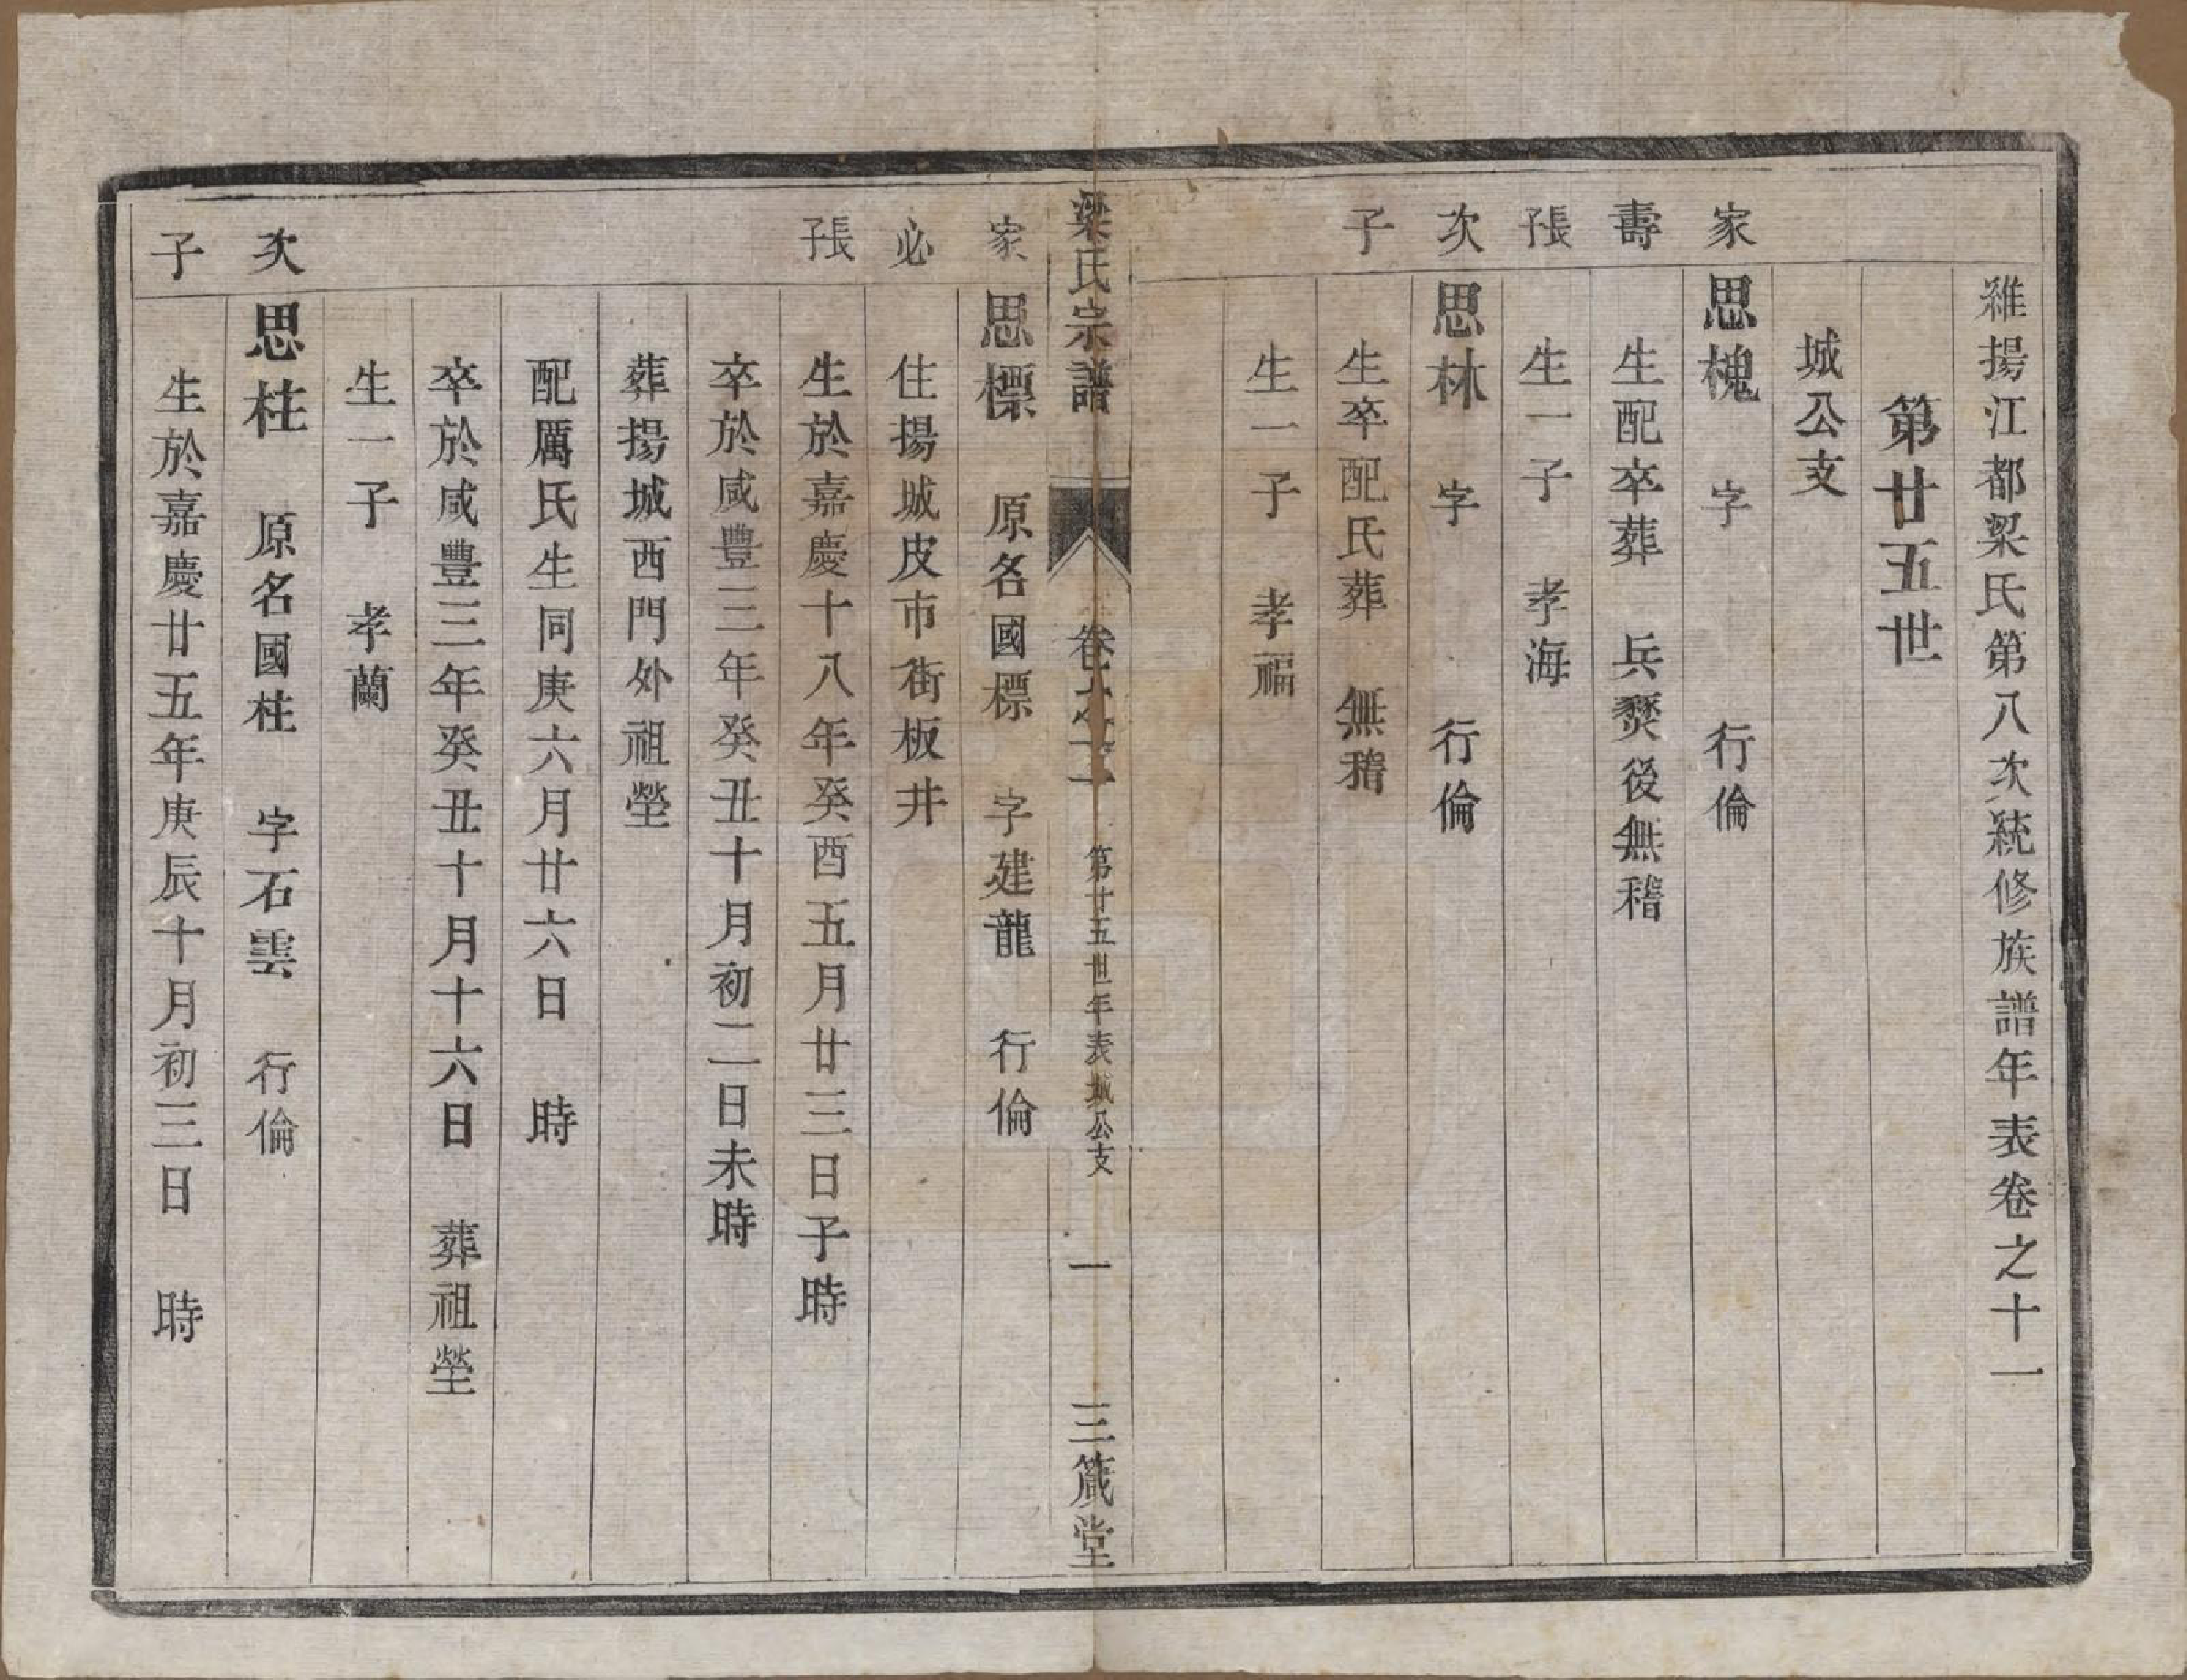 維揚江都梁氏第八次統修族譜年表卷之十一
第廿五世
城公支
家 思槐 字 行倫
壽 生配卒葬 兵燹後無稽
長子 生一子 孝海
次 思林 字 行倫
子 生卒配氏葬 無稽
生一子 孝福
梁氏宗譜 卷之十一 第廿五世年表城公支 一 三箴堂
家 思標 原名國標 字建龍 行倫
必 住揚城皮市街板井
長子 生於嘉慶十八年癸酉五月廿三日子時
卒於咸豐三年癸丑十月初二日未時
葬揚城西門外祖塋
配厲氏生同庚六月廿六日 時
卒於咸豐三年癸丑十月十六日 葬祖塋
生一子 孝蘭
次 思柱 原名國柱 字石雲 行倫
子 生於嘉慶廿五年庚辰十月初三日 時